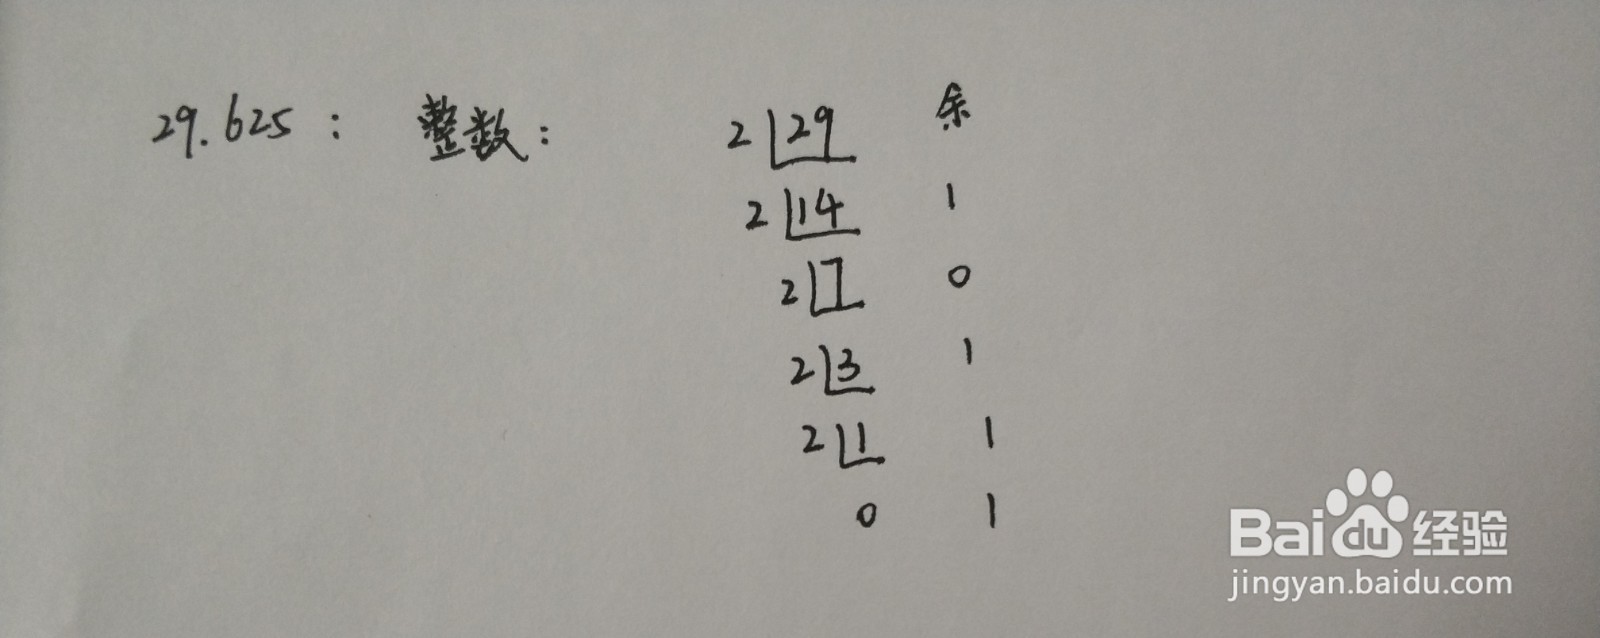 29.625： 整数： 2 29 余
2 14 1
2 7 0
2 3 1
2 1 1
0 1
Baidu经验
jingyan.baidu.com